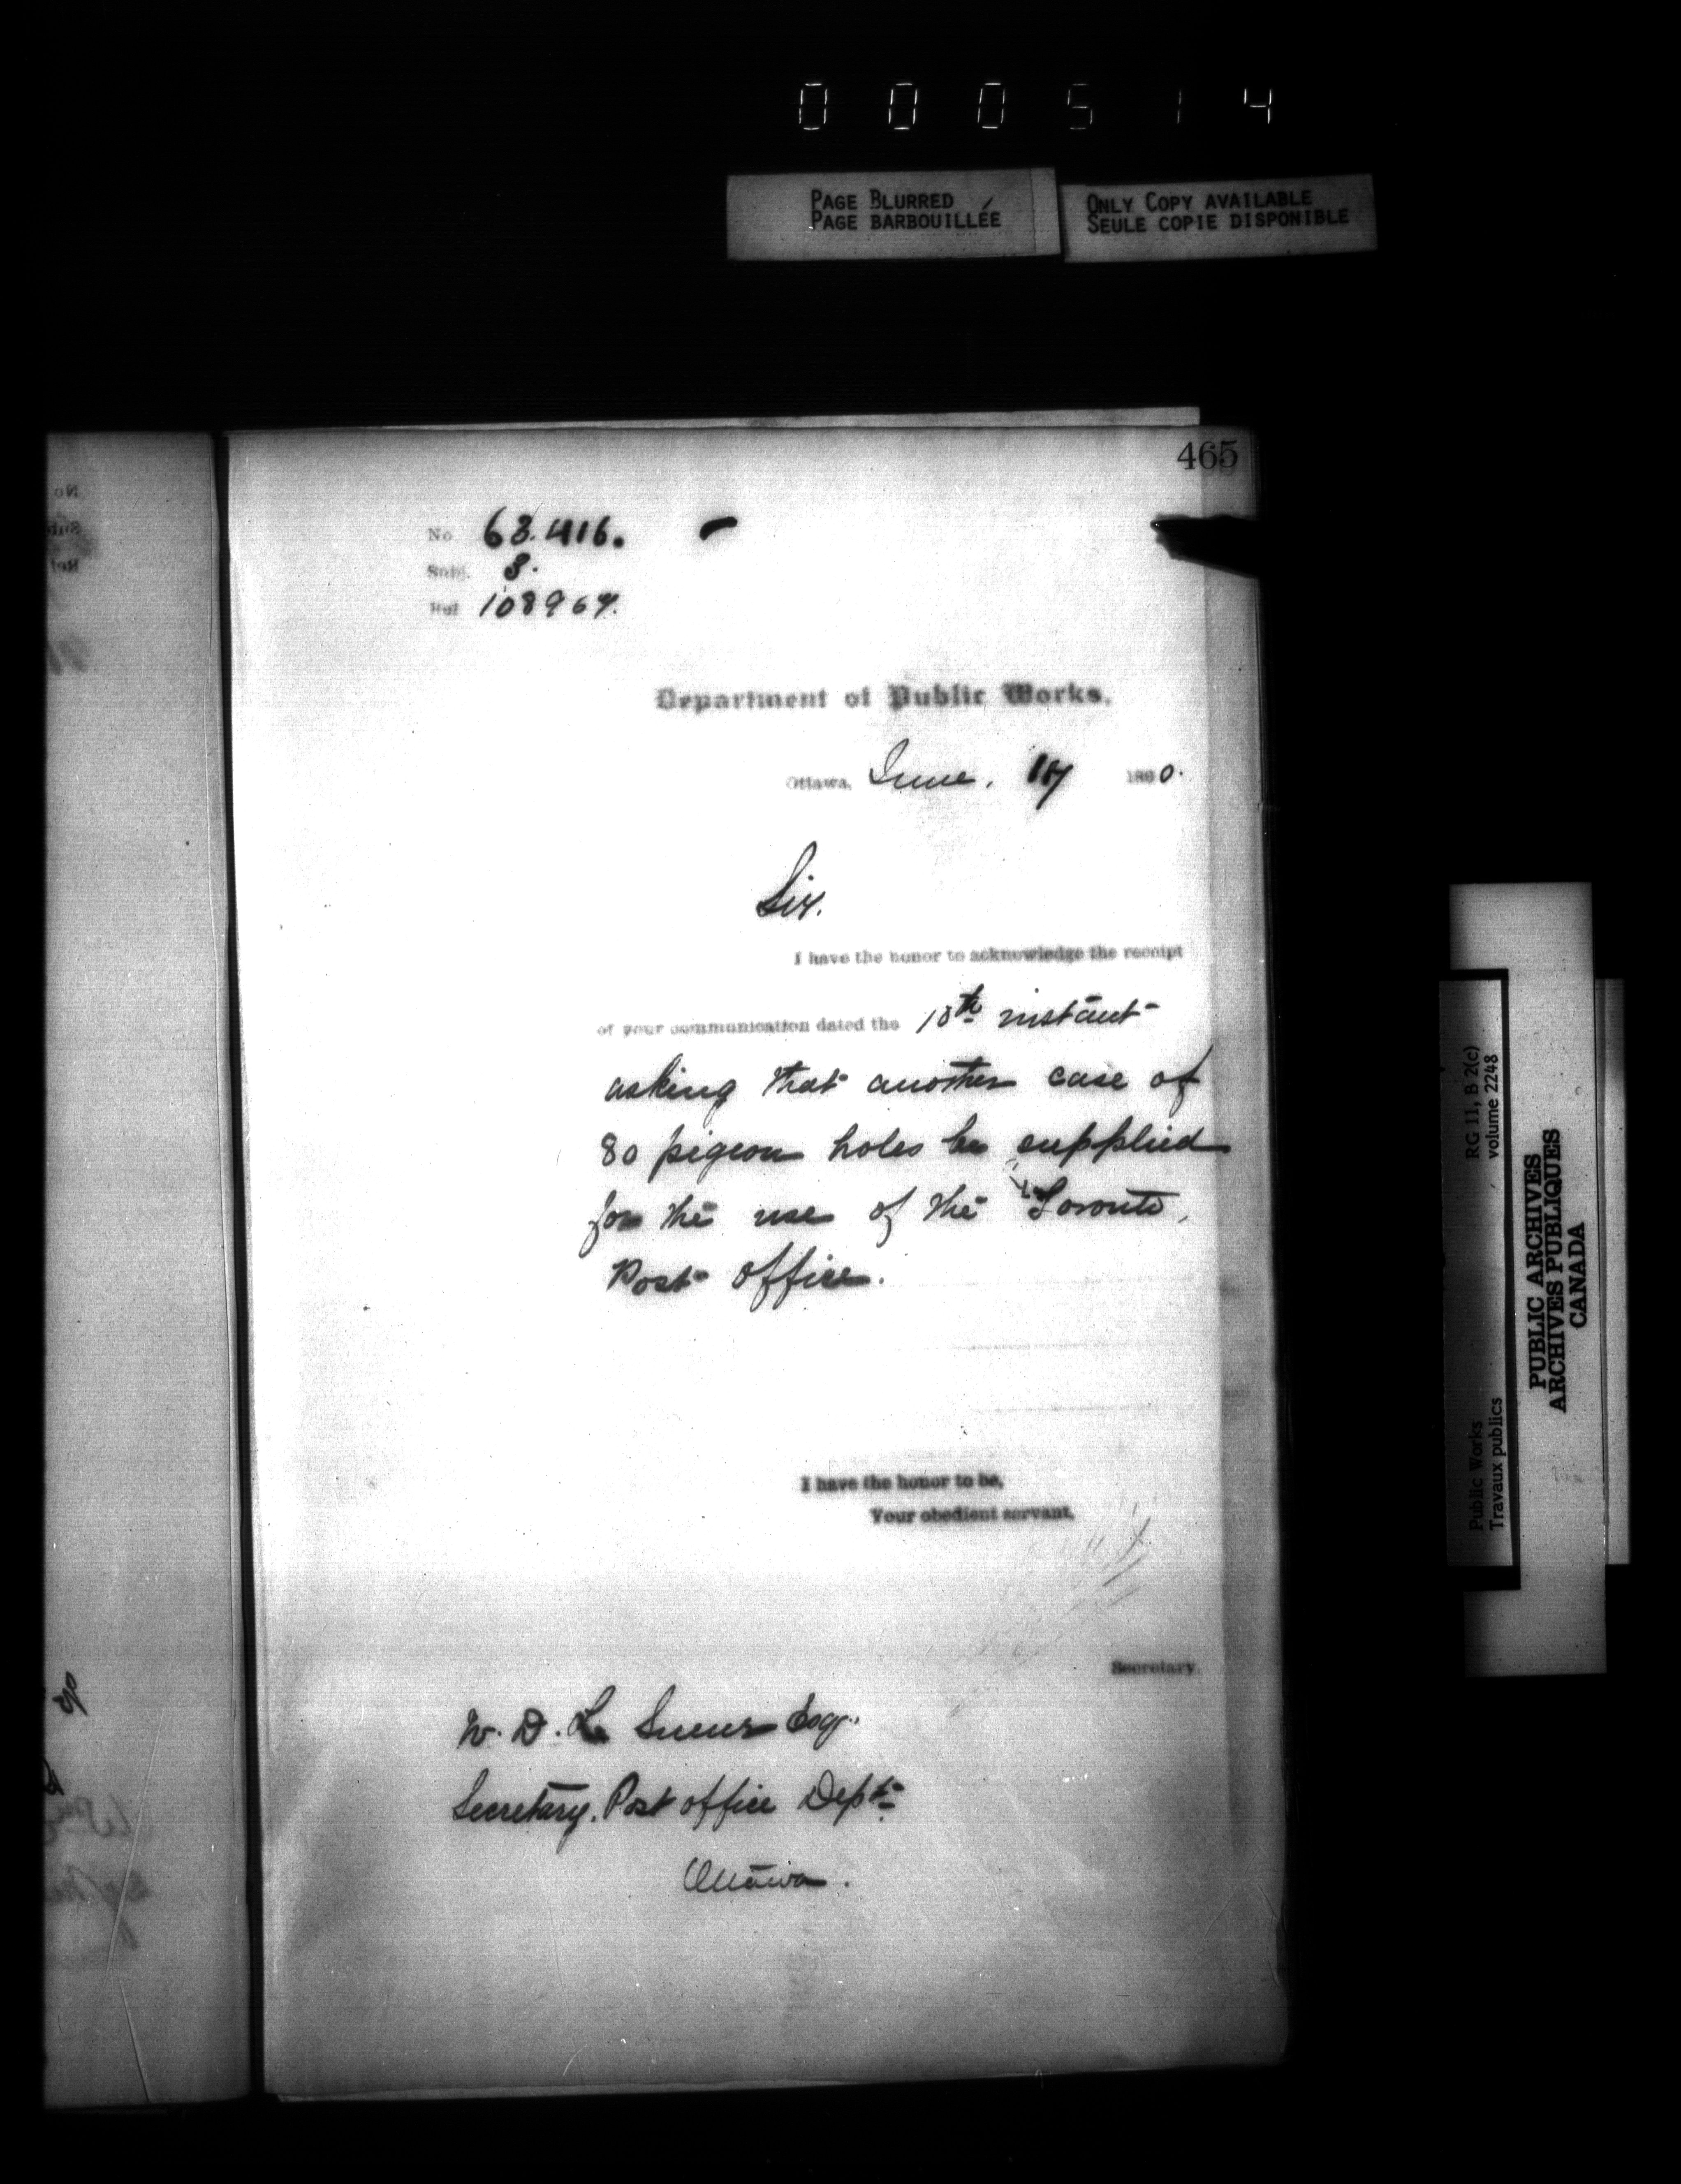 000514
PAGE BLURRED
PAGE BARBOUILLÉE
ONLY COPY AVAILABLE
SEULE COPIE DISPONIBLE
465
No 63.416.
Subj. 3.
Ref 108964.
Department of Public Works.
Ottawa, June. 17 1890.
Sir.
I have the honor to acknowledge the receipt
of your communication dated the 10th instant
asking that another case of
80 pigeon holes be supplied
for the use of the Toronto,
Post office.
I have the honor to be,
Your obedient servant,
Secretary.
W. D. Le Sueur Esqr.
Secretary. Post office Dept.
Ottawa.
RG 11, B 2(c)
volume 2248
Public Works
Travaux publics
PUBLIC ARCHIVES
ARCHIVES PUBLIQUES
CANADA